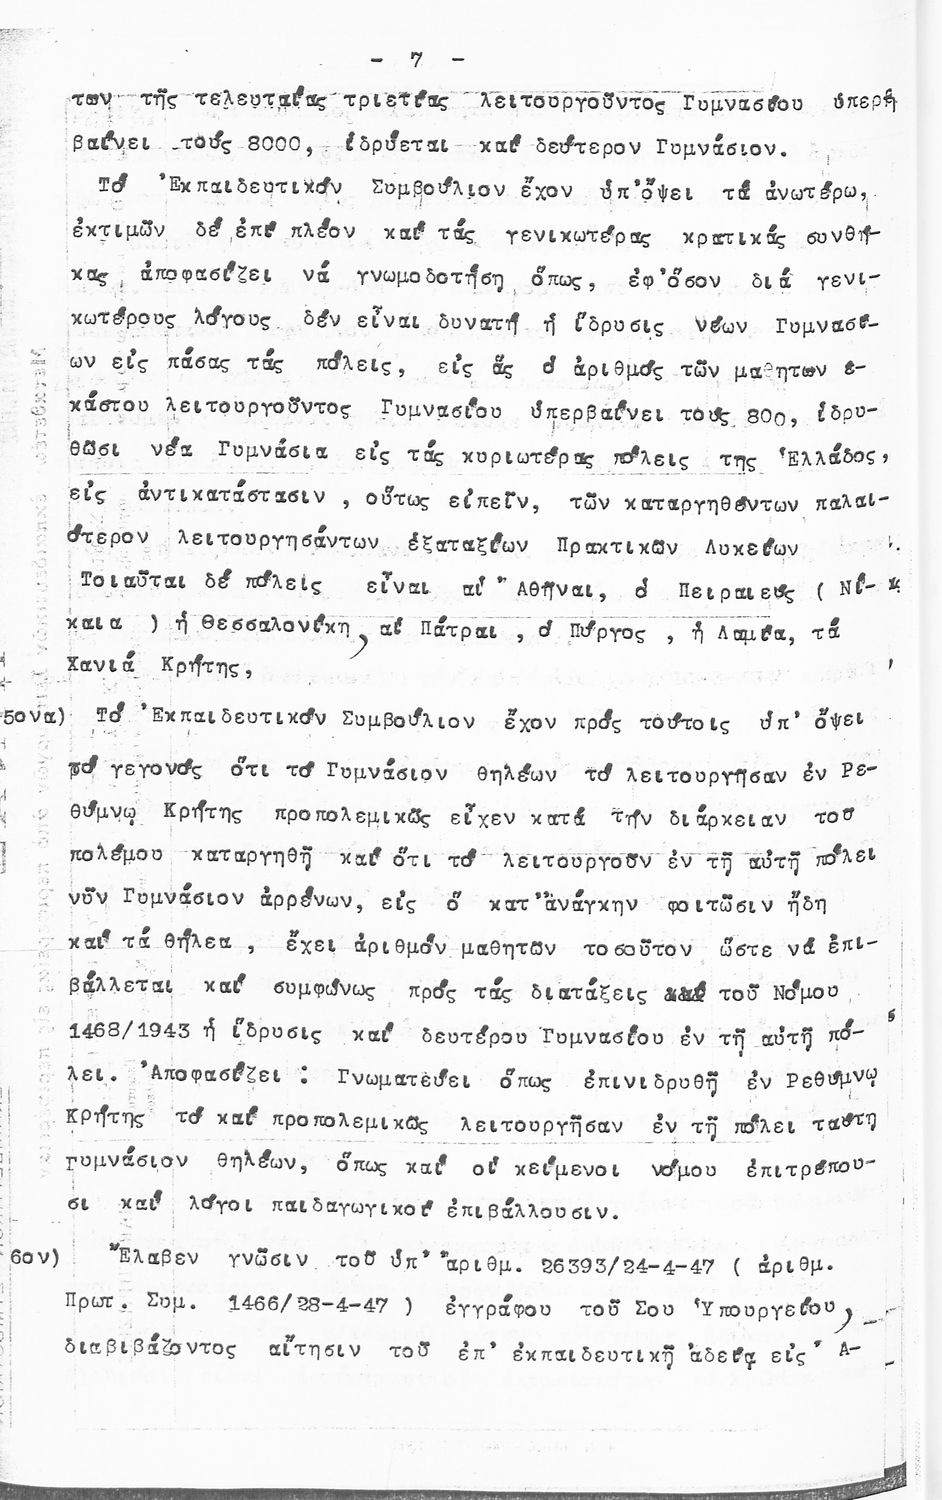 - 7 -
των τῆς τελευταίας τριετίας λειτουργοῦντος Γυμνασίου ὑπερ
βαίνει τούς 8000, ἱδρύεται καί δεύτερον Γυμνάσιον.
Τό Ἐκπαιδευτικόν Συμβούλιον ἔχον ὑπ'ὄψει τά ἀνωτέρω,
ἐκτιμῶν δέ ἐπί πλέον καί τάς γενικωτέρας κρατικάς συνθή-
κας ἀποφασίζει νά γνωμοδοτήση ὅπως, ἐφ'ὅσον διά γενι-
κωτέρους λόγους δέν εἶναι δυνατή ἡ ἵδρυσις νέων Γυμνασί-
ων εἰς πάσας τάς πόλεις, εἰς ἅς ὁ ἀριθμός τῶν μαθητων ἑ-
κάστου λειτουργοῦντος Γυμνασίου ὑπερβαίνει τούς 800, ἱδρυ-
θῶσι νέα Γυμνάσια εἰς τάς κυριωτέρας πόλεις της Ἑλλάδος,
εἰς ἀντικατάστασιν , οὕτως εἰπεῖν, τῶν καταργηθέντων παλαι-
ότερον λειτουργησάντων ἑξαταξίων Πρακτικῶν Λυκείων .
Τοιαῦται δέ πόλεις εἶναι αἱ Ἀθῆναι, ὁ Πειραιεύς ( Νί- κ
καια ) ἡ Θεσσαλονίκη, αἱ Πάτραι , ὁ Πύργος , ἡ Λαμία, τά
Χανιά Κρήτης,
5ονα) Τό Ἐκπαιδευτικόν Συμβούλιον ἔχον πρός τούτοις ὑπ' ὄψει
τό γεγονός ὅτι τό Γυμνάσιον θηλέων τό λειτουργῆσαν ἐν Ρε-
θύμνῳ Κρήτης προπολεμικῶς εἶχεν κατά τήν διάρκειαν τοῦ
πολέμου καταργηθῆ καί ὅτι τό λειτουργοῦν ἐν τῇ αὐτῇ πόλει
νῦν Γυμνάσιον ἀρρένων, εἰς ὅ κατ'ἀνάγκην φοιτῶσιν ἤδη
καί τά θήλεα , ἔχει ἀριθμόν μαθητῶν τοσοῦτον ὥστε νά ἐπι-
βάλλεται καί συμφώνως πρός τάς διατάξεις τοῦ Νόμου
1468/1943 ἡ ἵδρυσις καί δευτέρου Γυμνασίου ἐν τῇ αὐτῇ πό-
λει. Ἀποφασίζει : Γνωματεύει ὅπως ἐπινιδρυθῇ ἐν Ρεθύμνῳ
Κρήτης τό καί προπολεμικῶς λειτουργῆσαν ἐν τῇ πόλει ταύτη
Γυμνάσιον θηλέων, ὅπως καί οἱ κείμενοι νόμου ἐπιτρέπου-
σι καί λόγοι παιδαγωγικοί ἐπιβάλλουσιν.
6ον) Ἔλαβεν γνῶσιν τοῦ ὑπ' ἀριθμ. 26393/24-4-47 ( ἀριθμ.
Πρωτ. Συμ. 1466/28-4-47 ) ἐγγράφου τοῦ Σου Ὑπουργείου,
διαβιβάζοντος αἴτησιν τοῦ ἐπ' ἐκπαιδευτικῇ ἀδείᾳ εἰς Ἀ-